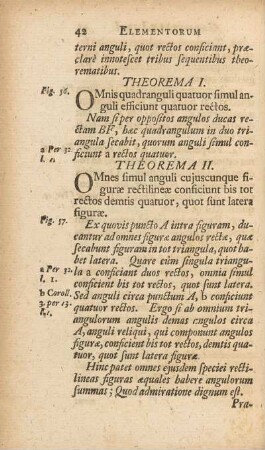 42 ELEMENTORUM
terni anguli, quot rectos conficiant, præ-
clarè innotescet tribus sequentibus theo-
rematibus.
THEOREMA I.
Fig. 58.
OMnis quadranguli quatuor simul an-
guli efficiunt quatuor rectos.
Nam si per oppositos angulos ducas
rectam BF, hæc quadrangulum in duo tri-
angula secabit, quorum anguli simul con-
a Per 32
ficiunt a rectos quatuor.
THEOREMA II.
OMnes simul anguli cujuscunque fi-
guræ rectilineæ conficiunt bis tot
rectos demtis quatuor, quot sunt latera
figuræ.
Fig. 57.
Ex quovis puncto A intra figuram, du-
cantur ad omnes figuræ angulos rectæ, quæ
secabunt figuram in tot triangula, quot ba-
bet latera. Quare cùm singula triangu-
a Per 32.
l. 1.
la a conficiant duos rectos, omnia simul
conficient bis tot rectos, quot sunt latera.
b Coroll.
2. per 13.
Sed anguli circa punctum A, b conficiunt
quatuor rectos. Ergo si ab omnium tri-
angulorum angulis demas angulos circa
A, anguli reliqui, qui componunt angulos
figuræ, conficient bis tot rectos, demtis qua-
tuor, quot sunt latera figuræ.
Hinc patet omnes ejusdem speciei recti-
lineas figuras æquales habere angulorum
summas; Quod admiratione dignum est.
Pra-